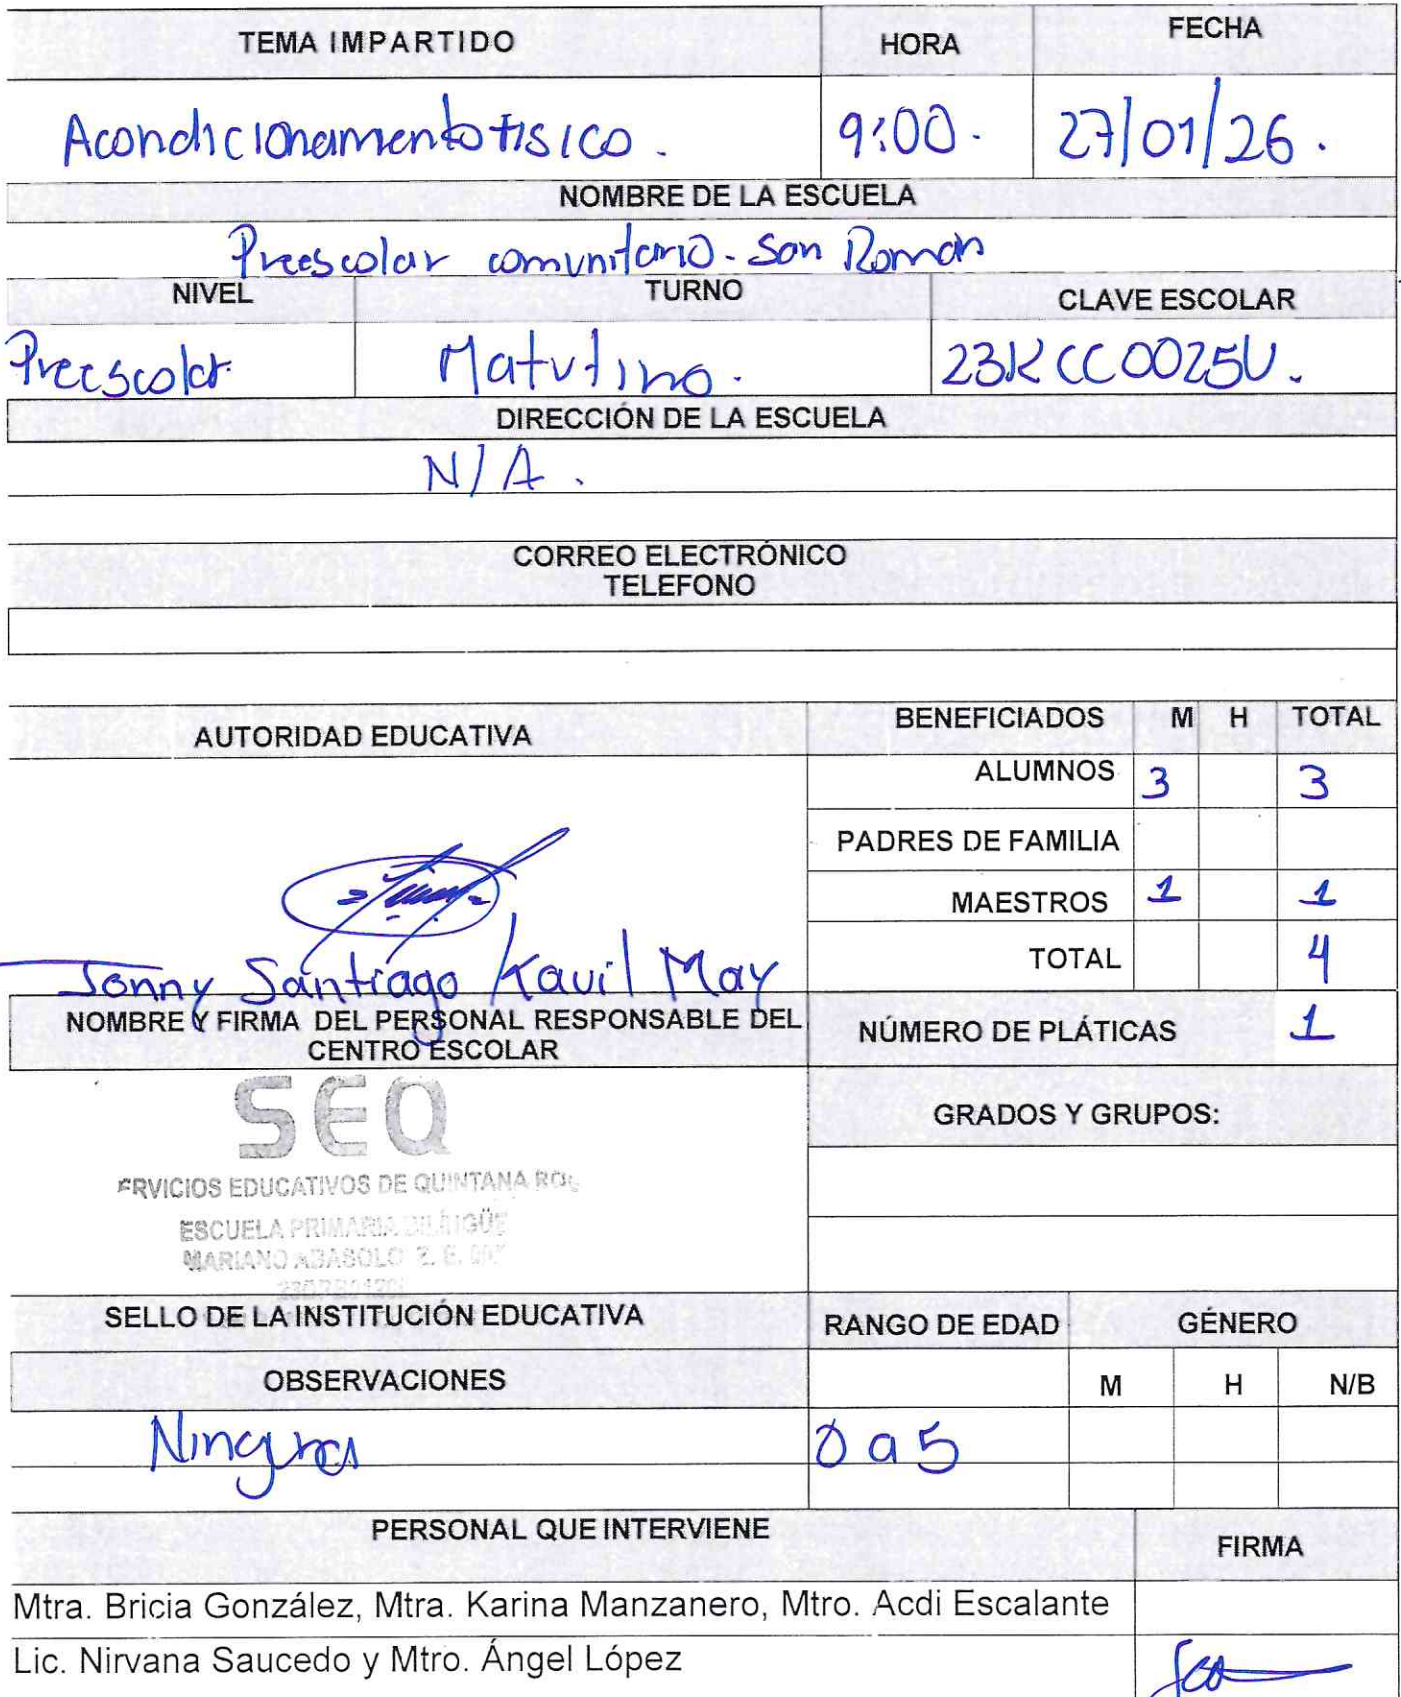 TEMA IMPARTIDO HORA FECHA
Acondicionamento fisico. 9:00. 27/01/26.
NOMBRE DE LA ESCUELA
Preescolar comunitario. San Roman
NIVEL TURNO CLAVE ESCOLAR
Preescolar Matutino. 23KCC0025U.
DIRECCIÓN DE LA ESCUELA
N/A.
CORREO ELECTRÓNICO
TELEFONO
AUTORIDAD EDUCATIVA BENEFICIADOS M H TOTAL
ALUMNOS 3 3
PADRES DE FAMILIA
MAESTROS 1 1
TOTAL 4
Jonny Santiago Kauil May
NOMBRE Y FIRMA DEL PERSONAL RESPONSABLE DEL
CENTRO ESCOLAR
NÚMERO DE PLÁTICAS 1
GRADOS Y GRUPOS:
SEQ
ERVICIOS EDUCATIVOS DE QUINTANA ROO
ESCUELA PRIMARIA BILINGÜE
MARIANO ABASOLO
SELLO DE LA INSTITUCIÓN EDUCATIVA RANGO DE EDAD GÉNERO
OBSERVACIONES M H N/B
Ninguna 0 a 5
PERSONAL QUE INTERVIENE FIRMA
Mtra. Bricia González, Mtra. Karina Manzanero, Mtro. Acdi Escalante
Lic. Nirvana Saucedo y Mtro. Ángel López